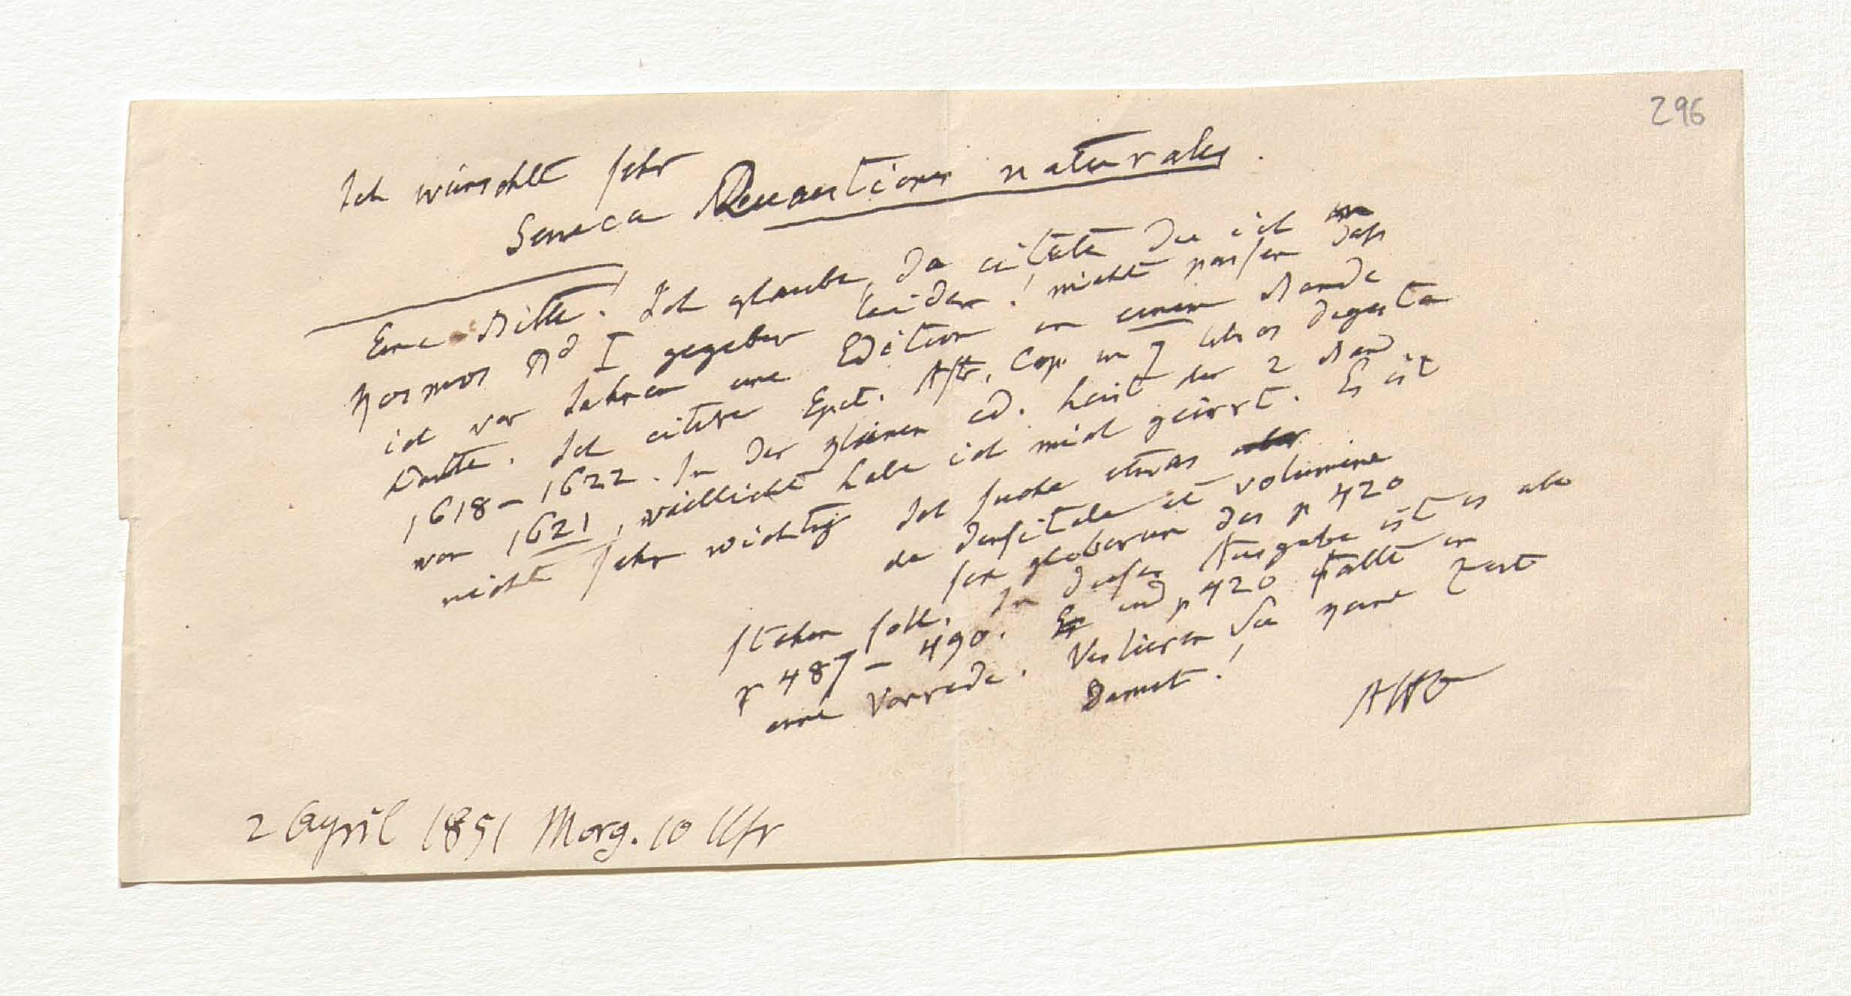 296
Ich wünschte sehr
Seneca Quaestiones naturales.
Eine Bitte! Ich glaube, da citate die ich im
Kosmos Bd I gegeben leider! nicht passen daß
ich vor Jahren eine Edition in einem Bande
hatte. Ich citire Epit. Astr. Cop in 7 libros digesta
1618–1622. In der kleinen ed. heist der 2 Band
von 1621, vielleicht habe ich mich geirrt. Es ist
nicht sehr wichtig Ich suche etwas aber
de densitate et volumine
globorum das p 420
stehen soll. In dieser Ausgabe ist es aber
p 487–490. Er und p 420 fällt in
eine Vorrede. Verlieren Sie keine Zeit
Damit!
AHt
2 April 1851 Morg. 10 Uhr